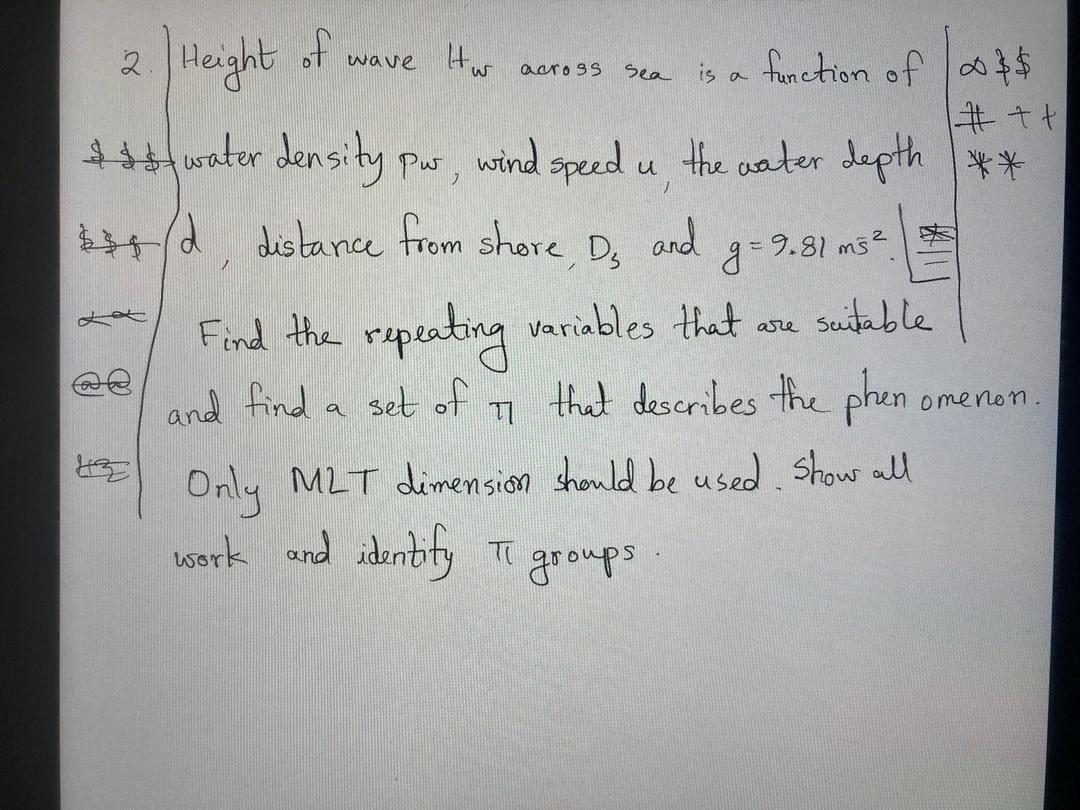 2. Height of wave Hw across sea is a function of ∞ $$
# + +
$$$ water density ρw, wind speed u, the water depth **
$$$ d, distance from shore, Ds and g = 9.81 ms⁻².
Find the repeating variables that are suitable
@@ and find a set of π that describes the phenomenon.
Only MLT dimension should be used. Show all
work and identify π groups.